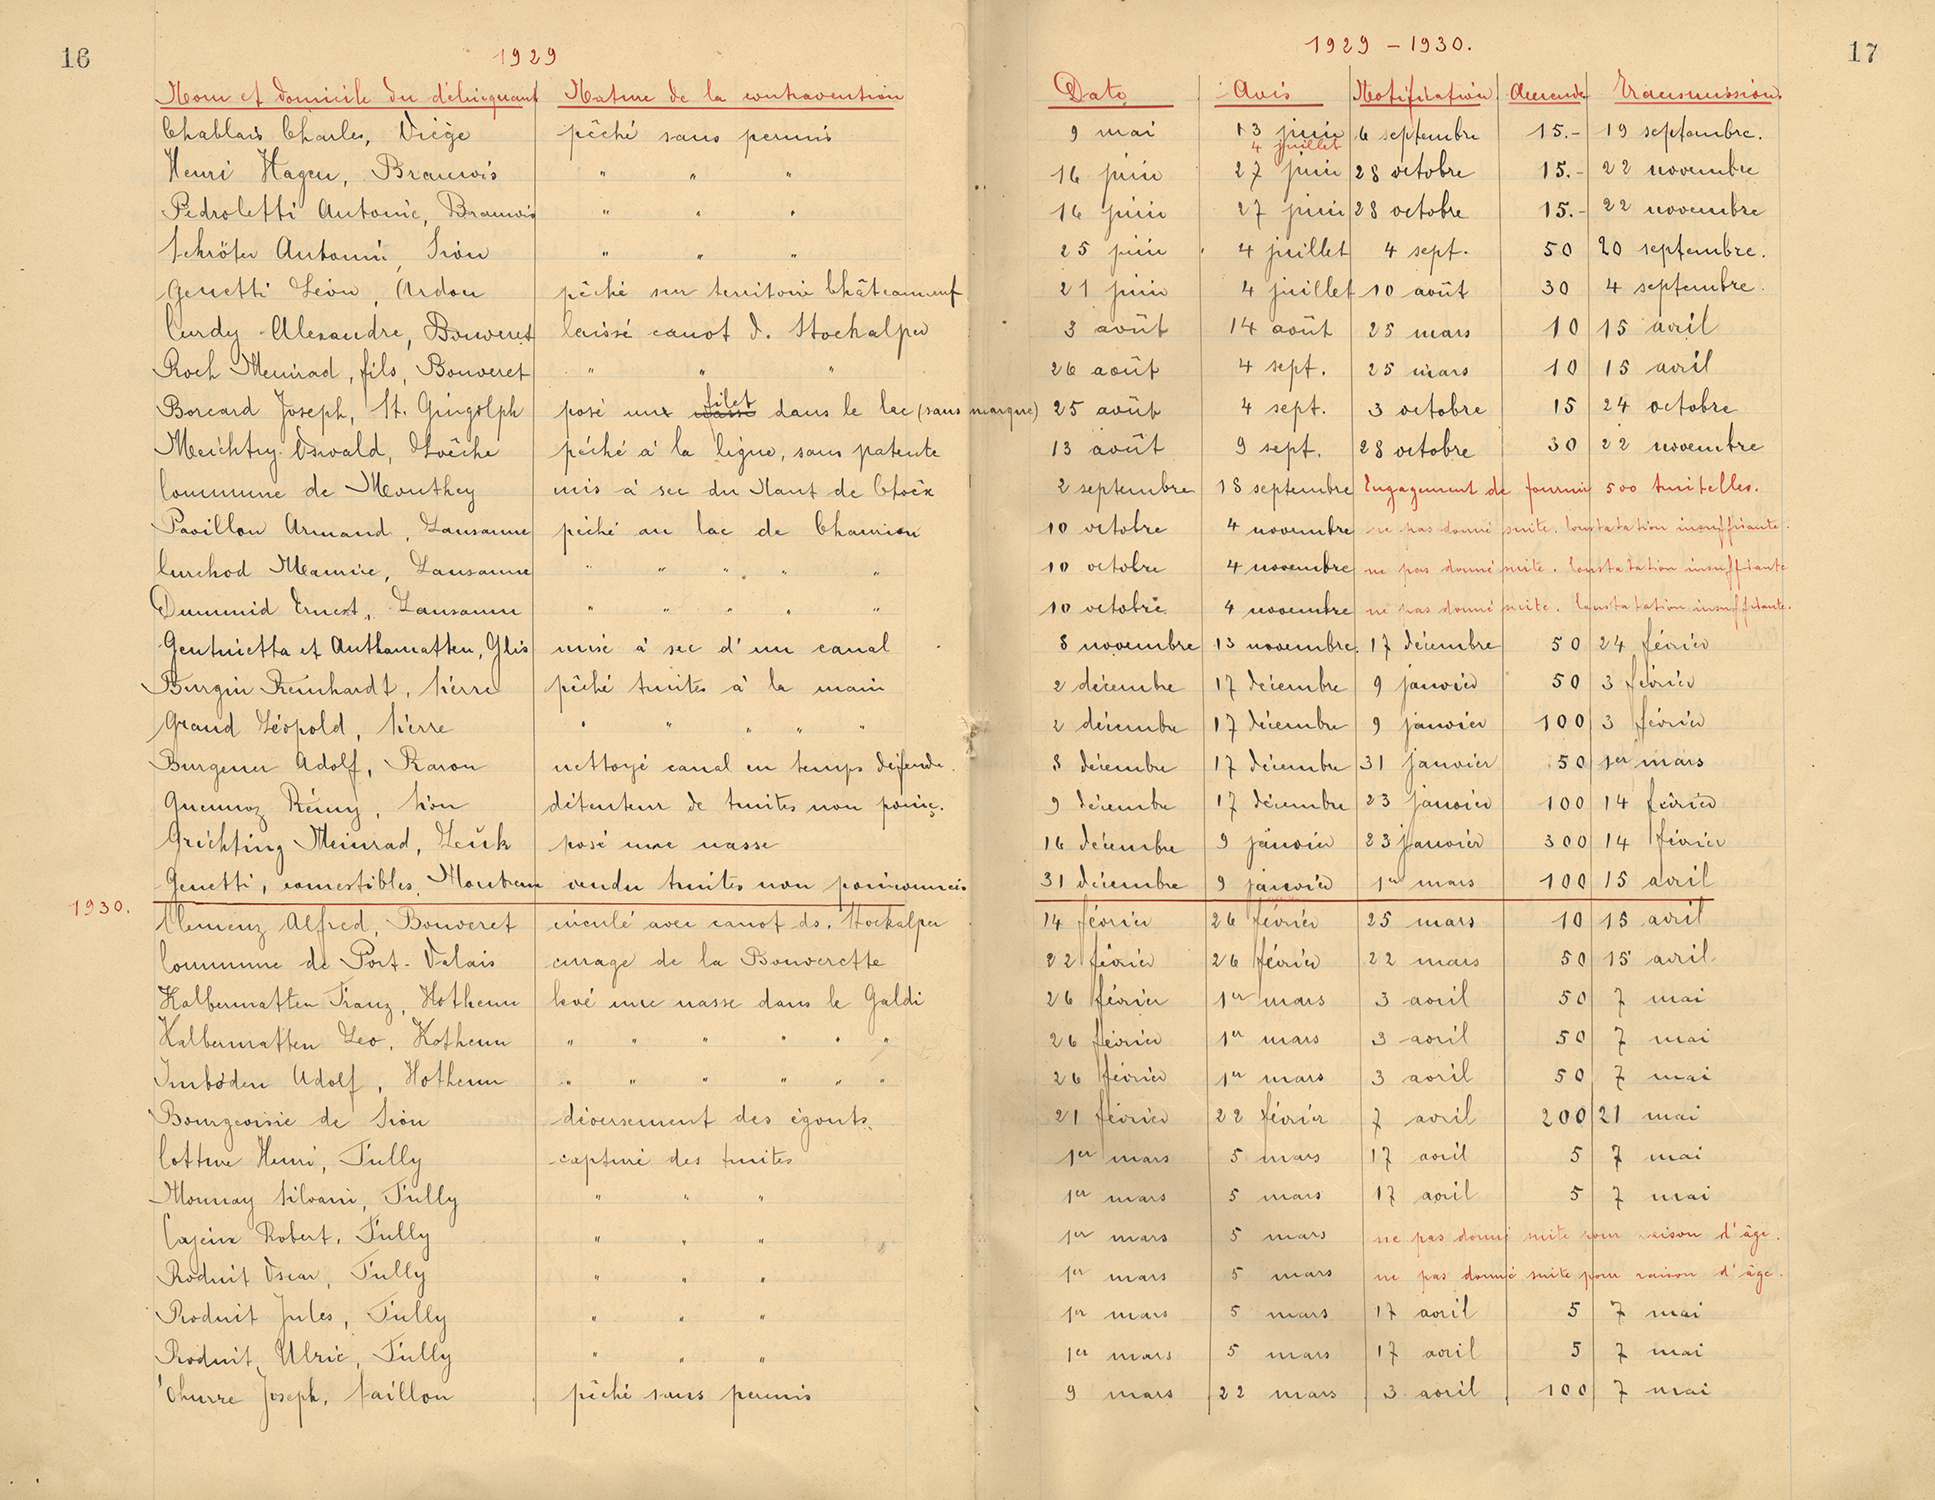 16
1929
1929 - 1930.
17
Nom et domicile du délinquant Nature de la contravention Date Avis Notification Amende Transmission.
Chablais Charles, Viège pêché sans permis 9 mai 13 juin 4 juillet 6 septembre 15.- 19 septembre.
Henri Hagen, Bramois " " " 16 juin 27 juin 28 octobre 15.- 22 novembre
Pedroletti Antonie, Bramois " " " 16 juin 27 juin 28 octobre 15.- 22 novembre
Schröter Antonin, Sion " " " 25 juin 4 juillet 4 sept. 50 20 septembre.
Genetti Léon, Ardon pêché sur territoire Châteauneuf 21 juin 4 juillet 10 août 30 4 septembre.
Curdy Alexandre, Bouveret laissé canot d. Stockalper 3 août 14 août 25 mars 10 15 avril
Roch Meinrad, fils, Bouveret " " " 26 août 4 sept. 25 mars 10 15 avril
Borcard Joseph, St. Gingolph posé une filet dans le lac (sans marque) 25 août 4 sept. 3 octobre 15 24 octobre
Meichtry Oswald, Loèche pêché à la ligne, sans patente 13 août 9 sept. 28 octobre 30 22 novembre
Commune de Monthey mis à sec du Nant de Choëx 2 septembre 18 septembre Engagement de fournir 500 truitelles.
Pavillon Armand, Lausanne pêché au lac de Chanrion 10 octobre 4 novembre ne pas donné suite. Constatation insuffisante.
Curchod Maurice, Lausanne " " " " " 10 octobre 4 novembre ne pas donné suite. Constatation insuffisante
Dummid Ernest, Lausanne " " " " " 10 octobre 4 novembre ne pas donné suite. Constatation insuffisante.
Gentinetta et Anthamatten, Glis mise à sec d'un canal 8 novembre 13 novembre. 17 décembre 50 24 février
Burgin Reinhardt, Sierre pêché truites à la main 2 décembre 17 décembre 9 janvier 50 3 février
Grand Léopold, Sierre " " " " " 2 décembre 17 décembre 9 janvier 100 3 février
Burgener Adolf, Raron nettoyé canal en temps défendu. 8 décembre 17 décembre 31 janvier 50 1er mars
Guennoz Rémy, Sion détenteur de truites non poinç. 9 décembre 17 décembre 23 janvier 100 14 février
Grichting Meinrad, Leuk posé une nasse 16 décembre 9 janvier 23 janvier 300 14 février
Genetti, comestibles, Montreux vendu truites non poinçonnées 31 décembre 9 janvier 1er mars 100 15 avril
1930.
Clemenz Alfred, Bouveret circulé avec canot ds. Stockalper 14 février 26 février 25 mars 10 15 avril
Commune de Port-Valais curage de la Bouverette 22 février 26 février 22 mars 50 15 avril
Kalbermatten Franz, Hothenn levé une nasse dans le Galdi 26 février 1er mars 3 avril 50 7 mai
Kalbermatten Leo, Hothenn " " " " " " 26 février 1er mars 3 avril 50 7 mai
Imboden Adolf, Hothenn " " " " " " 26 février 1er mars 3 avril 50 7 mai
Bourgeoisie de Sion déversement des égouts. 21 février 22 février 7 avril 200 21 mai
Cotture Henri, Fully capturé des truites 1er mars 5 mars 17 avril 5 7 mai
Monnay Silvain, Fully " " " 1er mars 5 mars 17 avril 5 7 mai
Cajeux Robert, Fully " " " 1er mars 5 mars ne pas donné suite pour raison d'âge.
Roduit Oscar, Fully " " " 1er mars 5 mars ne pas donné suite pour raison d'âge.
Roduit Jules, Fully " " " 1er mars 5 mars 17 avril 5 7 mai
Roduit Ulric, Fully " " " 1er mars 5 mars 17 avril 5 7 mai
Joseph, Saillon pêché sans permis 9 mars 22 mars 3 avril 100 7 mai